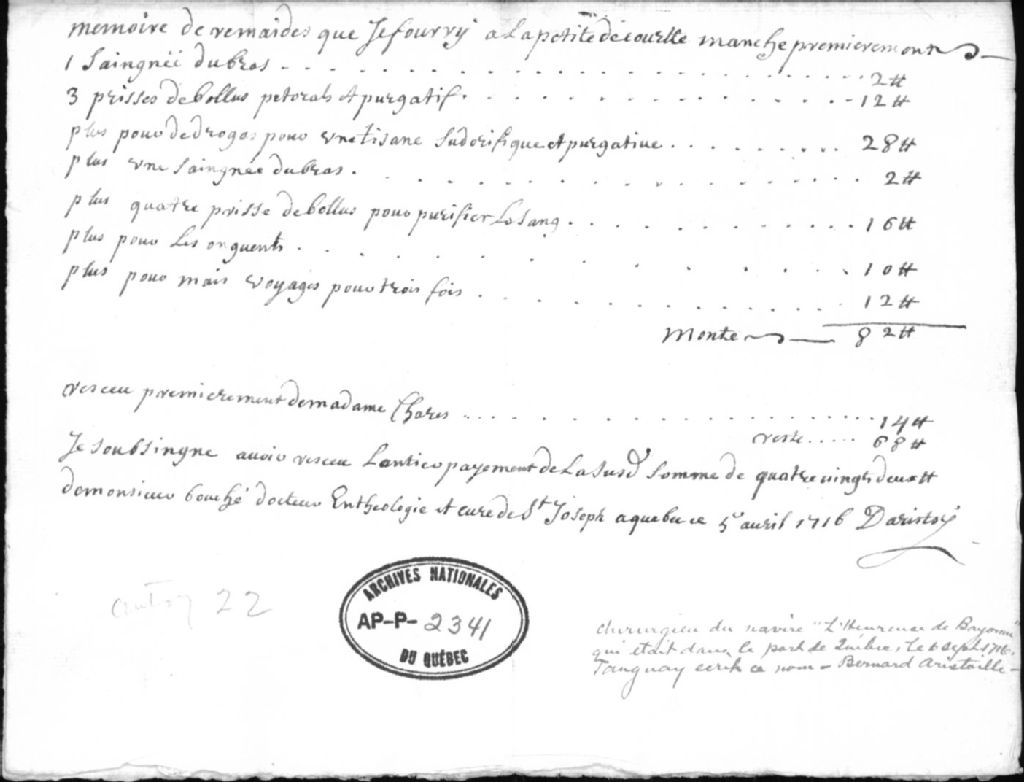 memoire de remaides que Jefourny a Lapetite decourtte manche premierement
1 Saingnée dubras . . . . . . . . . . 2tt
3 prisses debollus petorals et purgatif . . . . . . . . . . 12tt
plus pour dedroges pour unetisane Sudorifique et purgative . . . . . . . . . 28tt
plus une Saingnée dubras . . . . . . . . . . 2tt
plus quatre prisse debollus pour purifier Lesang . . . . . . . . . . 16tt
plus pour Les onguents . . . . . . . . . . 10tt
plus pour mais voyages pour trois fois . . . . . . . . . . 12tt
Monte 82tt
resceu premierement demadame Chares . . . . . . . . . . 14tt
reste ..... 68tt
Je soubsingne avoir resceu Lantier payement de La susd somme de quatre vingt deux tt
demonsieur bouché docteur Entheologie et cure de St Joseph aquebec ce 5e avril 1716 Daristoy
22
ARCHIVES NATIONALES
AP-P-2341
DU QUÉBEC
chirurgien du navire "L'Heureuse de Bayonne"
qui était dans le port de Québec le 6 sept 1716.
Tanguay écrit ce nom - Bernard Aristoille -